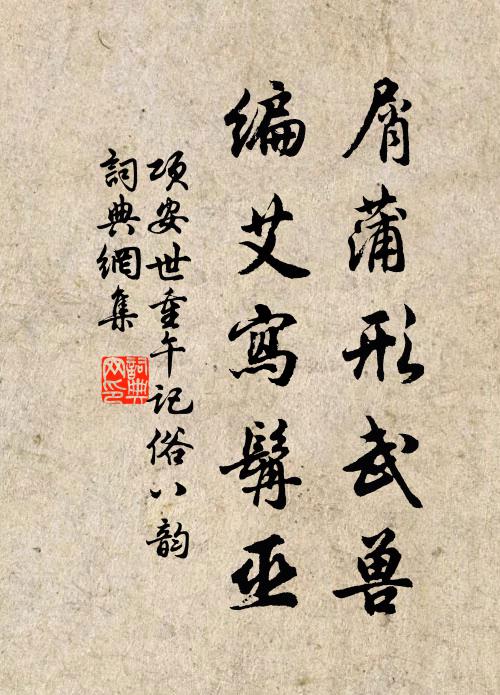 屑蒲形武兽
编艾寫髯巫
项安世重午记俗八韵
詞典網集
詞典網印